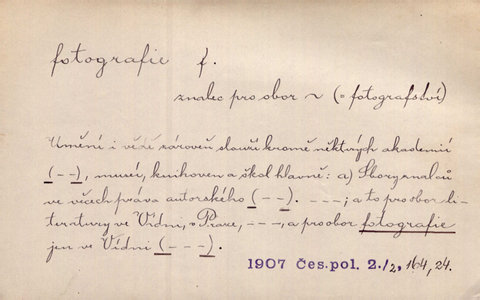 fotografie f.
znalec pro obor ~ (= fotografství)
Umění i vědě zároveň slouží kromě některých akademií
(– –), museí, knihoven a škol hlavně: a) Sbory znalců
ve věcech práva autorského (– –). – – –; a to pro obor li-
teratury ve Vídni, v Praze, – – –, a pro obor fotografie
jen ve Vídni (– – –).
1907 Čes. pol. 2./2, 164, 24.